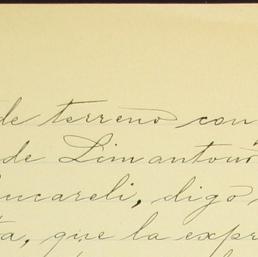 de terreno con
de Limantour
Bucareli, digo
ta, que la expr